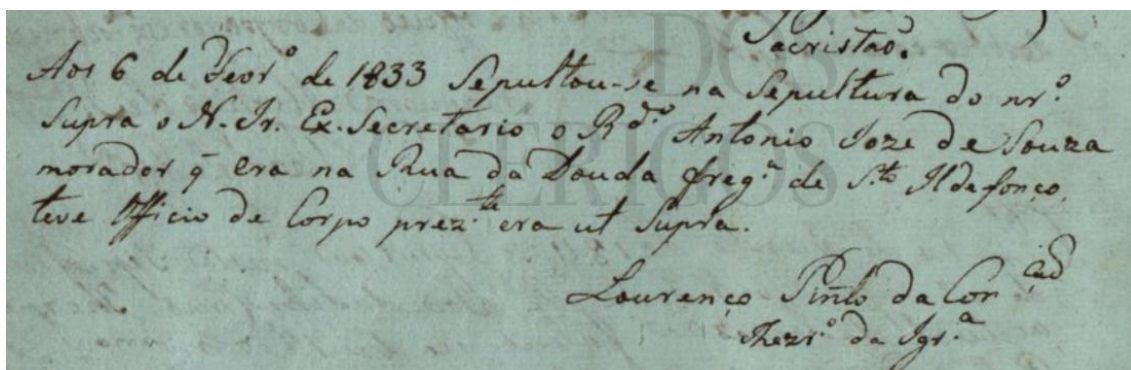 Sacristaõ.
Aos 6 de Fevr.º de 1833 Sepultou-se na Sepultura do nr.º
Supra o N. Ir. Ex. Secretario o R.dº Antonio Joze de Souza
morador q̃ era na Rua da Douda freg.ª de S.to Ildefonço.
teve Officio de Corpo prez.te era ut Supra.
Lourenço Pinto da Con
Thezr.º da Igr.ª
DOS
CLÉRIGOS